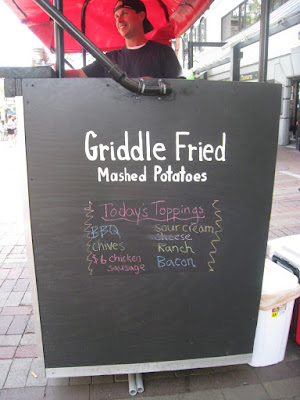 Griddle Fried
Mashed Potatoes
Today's Toppings
BBQ
chives
$6 chicken
sausage
sour cream
cheese
Ranch
Bacon